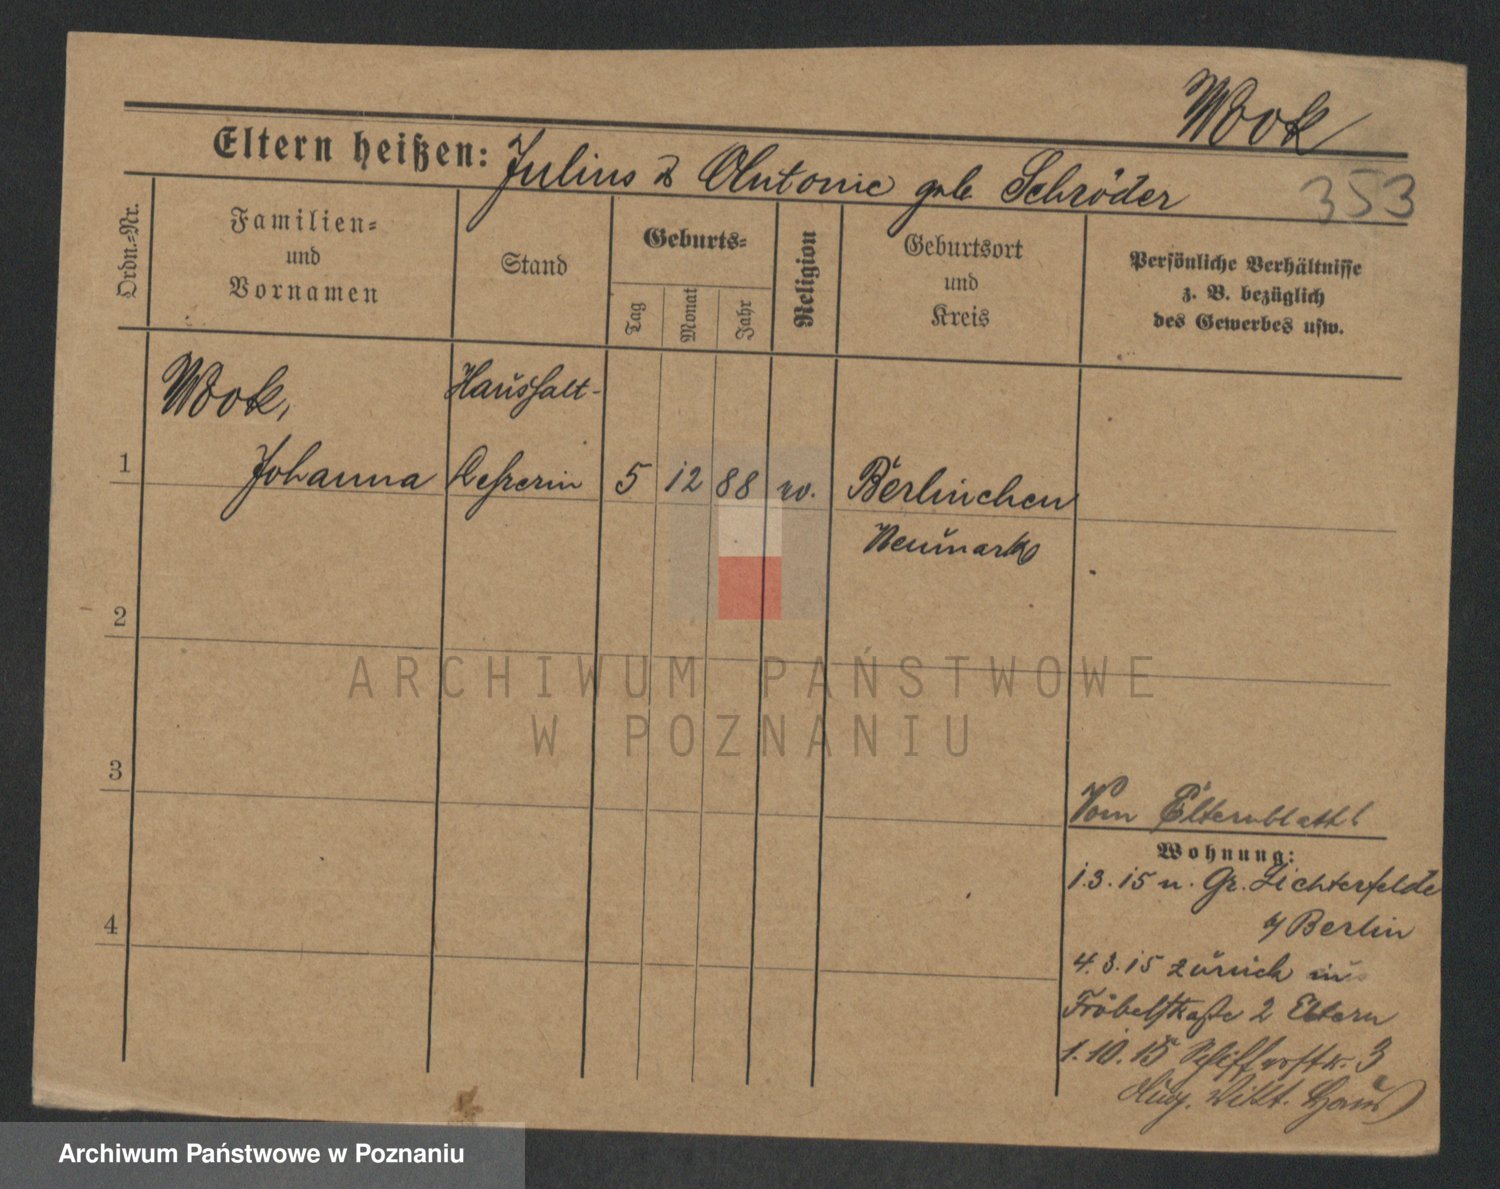 Wook
Eltern heißen: Julius & Antonie geb. Schröder
353
Ordn.=Nr.
Familien=
und
Vornamen
Stand
Geburts=
Tag
Monat
Jahr
Religion
Geburtsort
und
Kreis
Persönliche Verhältnisse
z. B. bezüglich
des Gewerbes usw.
Wook, Haushalt-
1 Johanna Lehrerin 5 12 88 Berlinchen
Neumark
2
3
4
Vom Elternblatt
Wohnung:
1.3.15 n. Gr. Lichterfelde
b/ Berlin
4.3.15 zurück
Fröbelstraße 2 Eltern
1.10.15 3
Aug. Vikt. Haus
ARCHIWUM PAŃSTWOWE
W POZNANIU
Archiwum Państwowe w Poznaniu